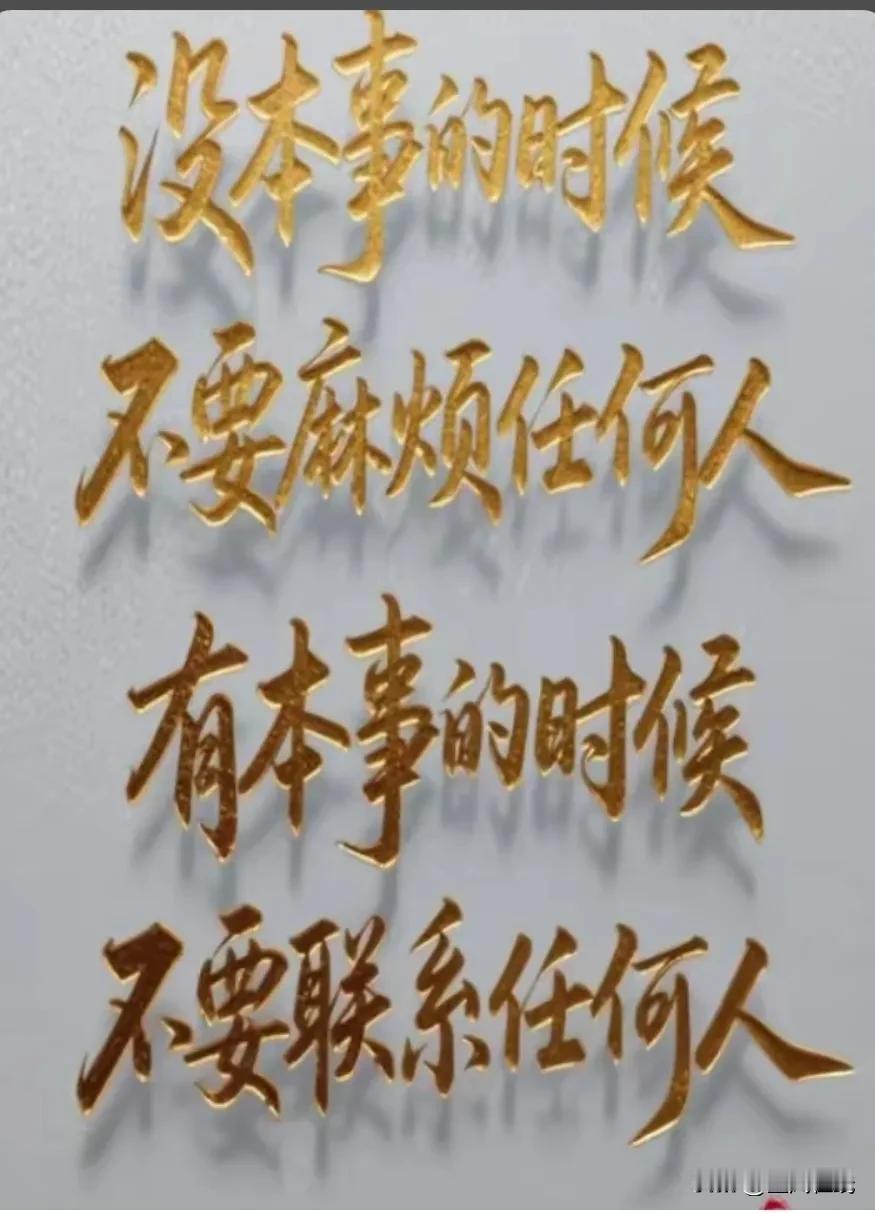 没本事的时候
不要麻烦任何人
有本事的时候
不要联系任何人